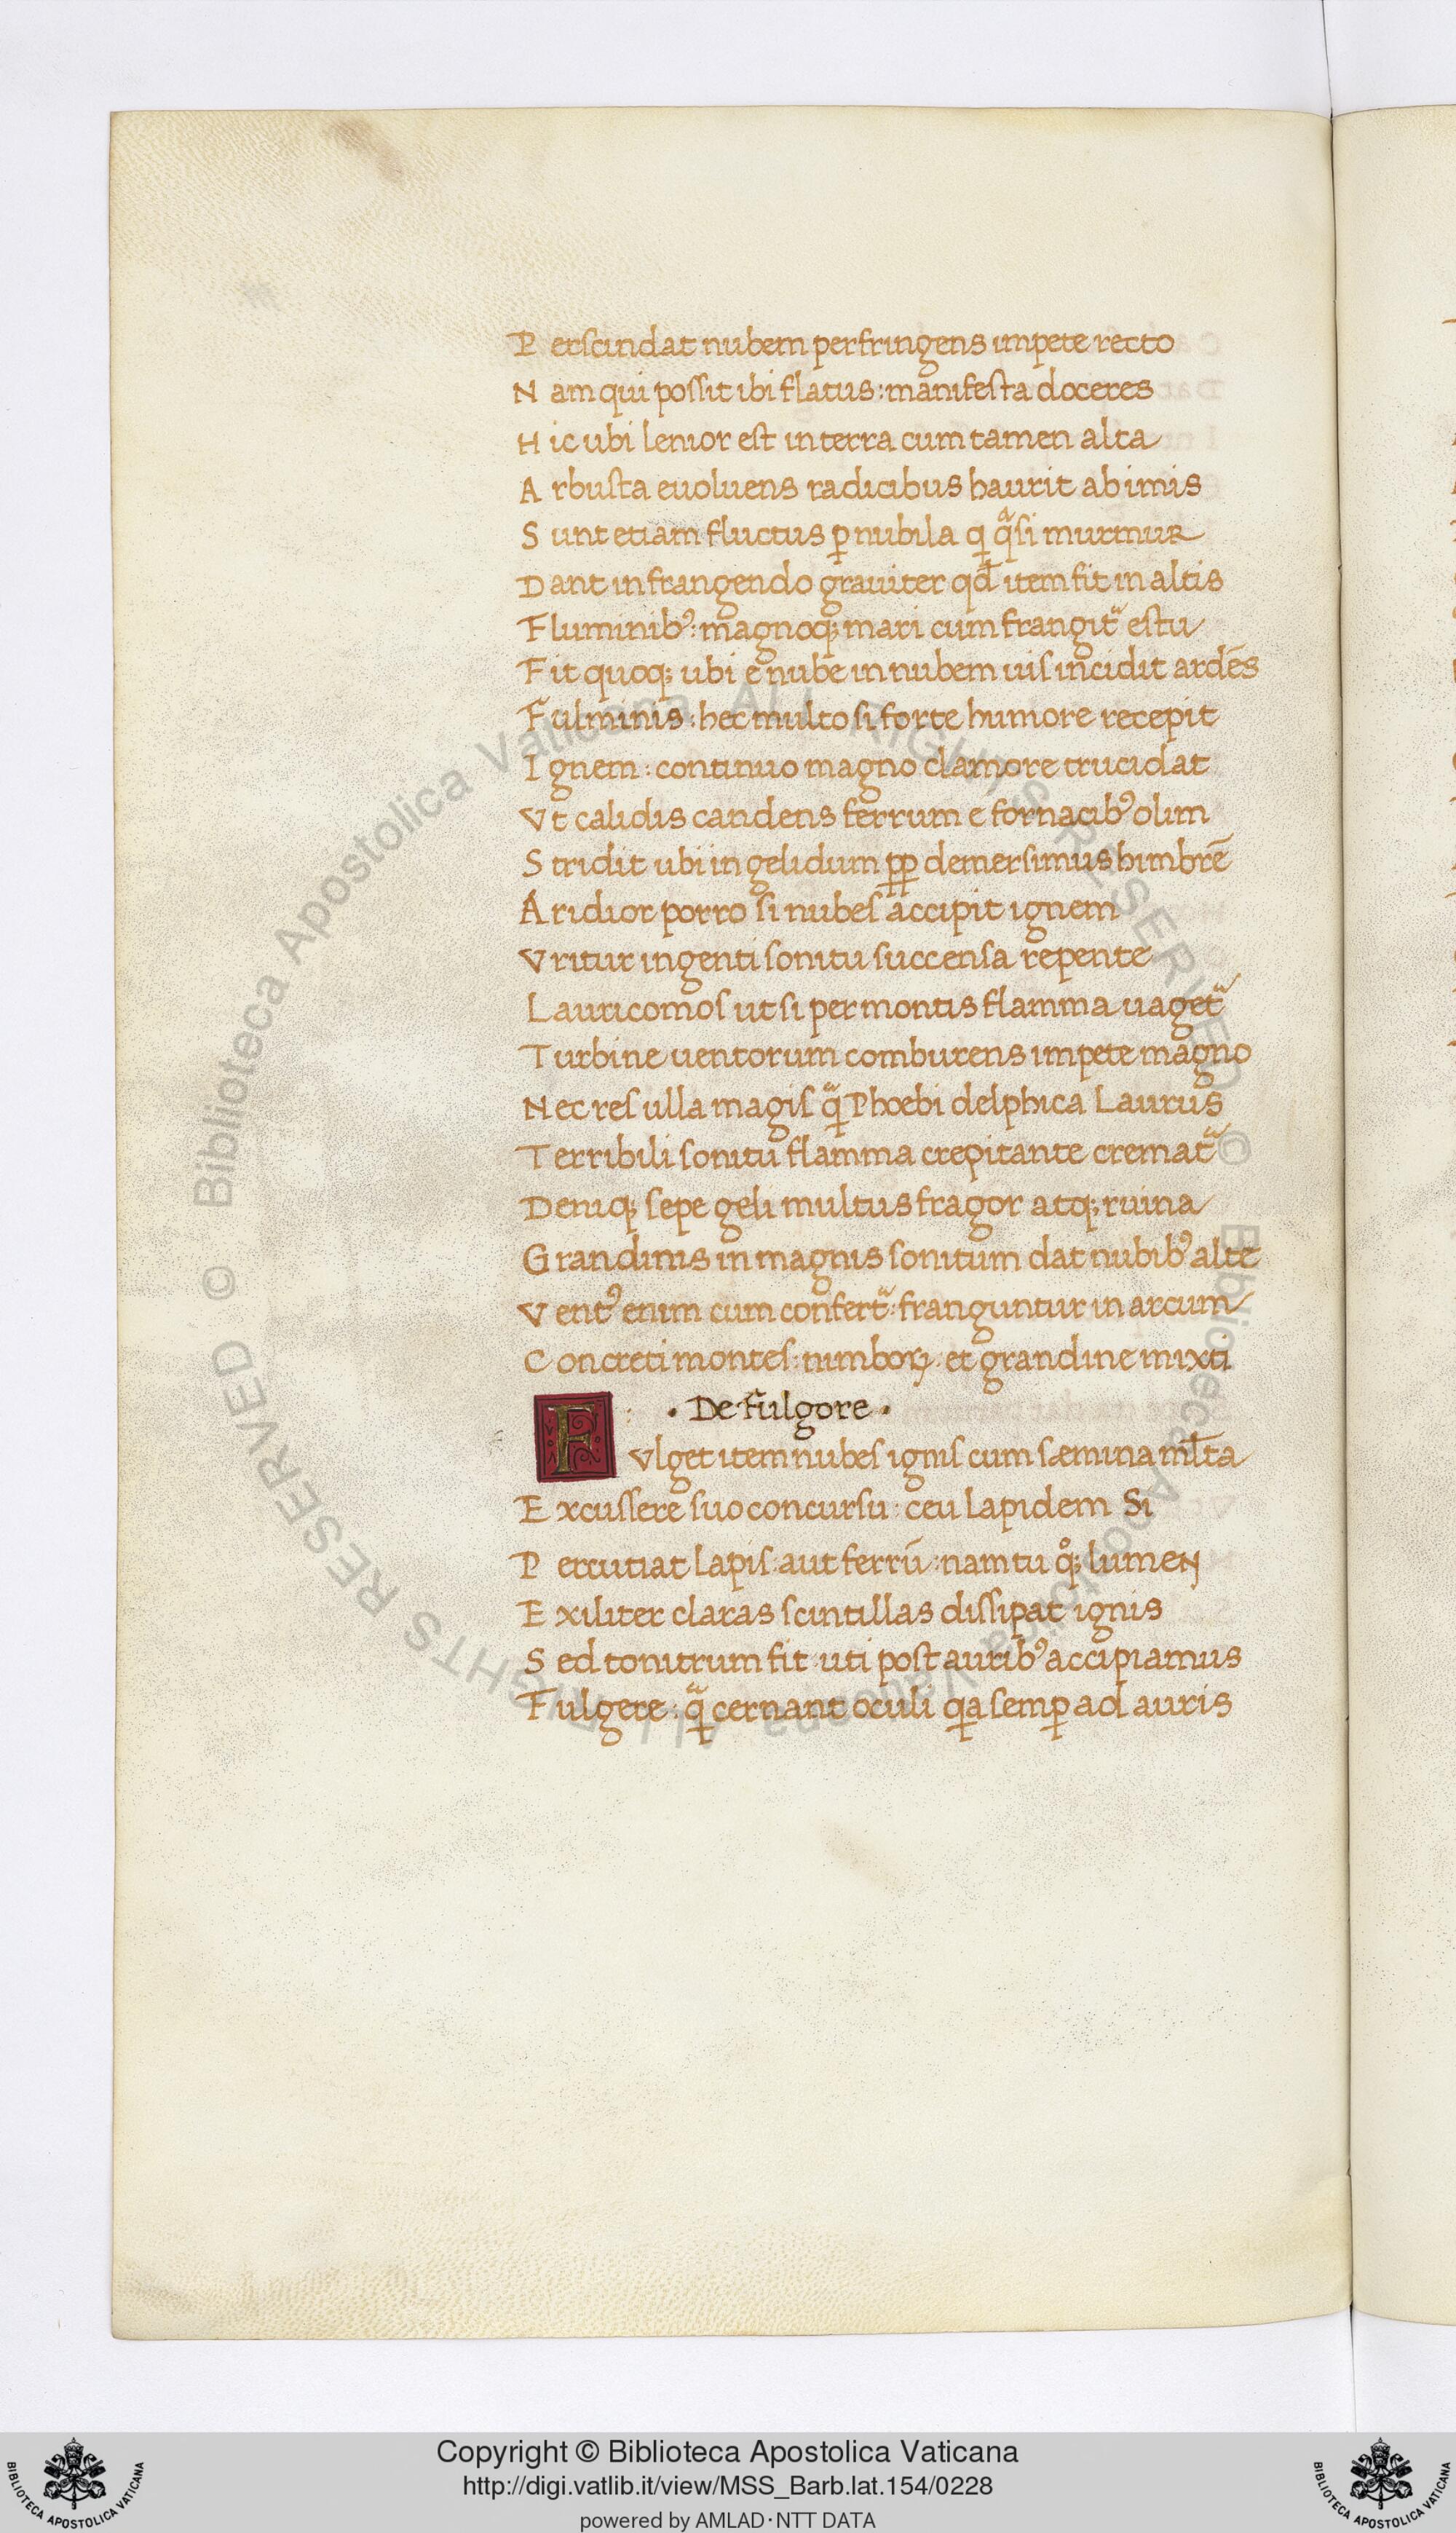 Perscindat nubem perfringens impete recto
Nam qui possit ibi flatus : manifesta doceres
Hic ubi lenior est in terra cum tamen alta
Arbusta euoluens radicibus haurit ab imis
Sunt etiam fluctus ꝑ nubila q qͣsi murmur
Dant in frangendo grauiter qd̄ item fit in altis
Fluminibꝰ : magnoqꝫ mari cum frangit᷑ estu
Fit quoqꝫ ubi e nube in nubem uis incidit ardēs
Fulminis : hec multo si forte humore recepit
Ignem : continuo magno clamore trucidat
Vt calidis candens ferrum e fornacibꝰ olim
Stridit ubi in gelidum ꝓꝑ demersimus himbrē
Aridior porro si nubes accipit ignem
Vritur ingenti sonitu succensa repente
Lauricomos ut si per montis flamma uaget᷑
Turbine uentorum comburens impete magno
Nec res ulla magis qᷓ Phoebi delphica Laurus
Terribili sonitu flamma crepitante cremat᷑
Deniqꝫ sepe geli multus fragor atqꝫ ruina
Grandinis in magnis sonitum dat nubibꝰ alte
Ventꝰ enim cum confert᷑ : franguntur in arcum
Concreti montes : nimboꝝ : et grandine mixti
• De fulgore •
FVlget item nubes ignis cum sæmina ml̄ta
Excussere suo concursu : ceu lapidem Si
Percutiat lapis : aut ferrū : nam tu qͦqꝫ lumen
Exiliter claras scintillas dissipat ignis
Sed tonitrum fit uti post auribꝰ accipiamus
Fulgere : qᷓ cernant oculi qa semꝑ ad auris
© Biblioteca Apostolica Vaticana ALL RIGHTS RESERVED © Biblioteca Apostolica Vaticana ALL RIGHTS RESERVED
Copyright © Biblioteca Apostolica Vaticana
http://digi.vatlib.it/view/MSS_Barb.lat.154/0228
powered by AMLAD·NTT DATA
BIBLIOTECA APOSTOLICA VATICANA
BIBLIOTECA APOSTOLICA VATICANA